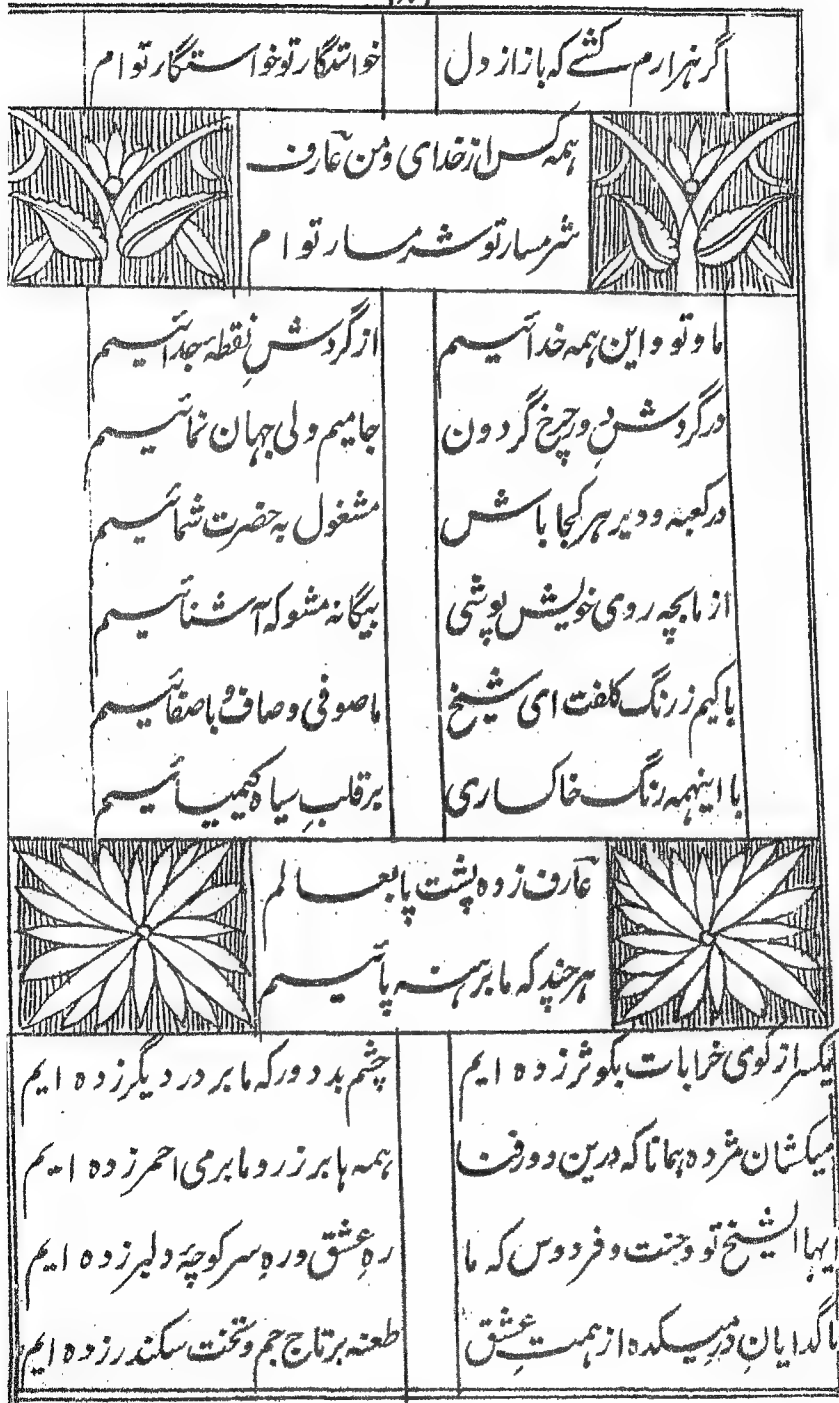 اگر هزارم کشے که باز از دل
خواستگار تو خواستگار توام
همه کس از خدای و من عارف
شرمسار تو شرمسار توام
ما و تو و این همه خدائیم
از گردشِ نقطه جدائیم
در گردشِ دورِ چرخ گردون
جامیم ولی جهان نمائیم
در کعبه و دیر هر کجا باش
مشغول به حضرت شمائیم
از ما بچه روی خویش پوشی
بیگانه مشو که آشنائیم
باکیم ز رنگ کلفت ای شیخ
ما صوفی و صاف و باصفائیم
با اینهمه رنگ خاکساری
بر قلبِ سیاه کیمیائیم
عارف زده پشت پا بعالم
هر چند که ما برهنه پائیم
یکسر از کوی خرابات بکوثر زده ایم
چشم بد دور که ما بر در دیگر زده ایم
میکشان مژده همانا که درین دور فنا
همه ها بر زر و ما بر می احمر زده ایم
ایها الشیخ تو و جنت و فردوس که ما
رهِ عشق و رهِ سر کوچهٔ دلبر زده ایم
ما گدایانِ درِ میکده از همتِ عشق
طعنه بر تاج جم و تخت سکندر زده ایم